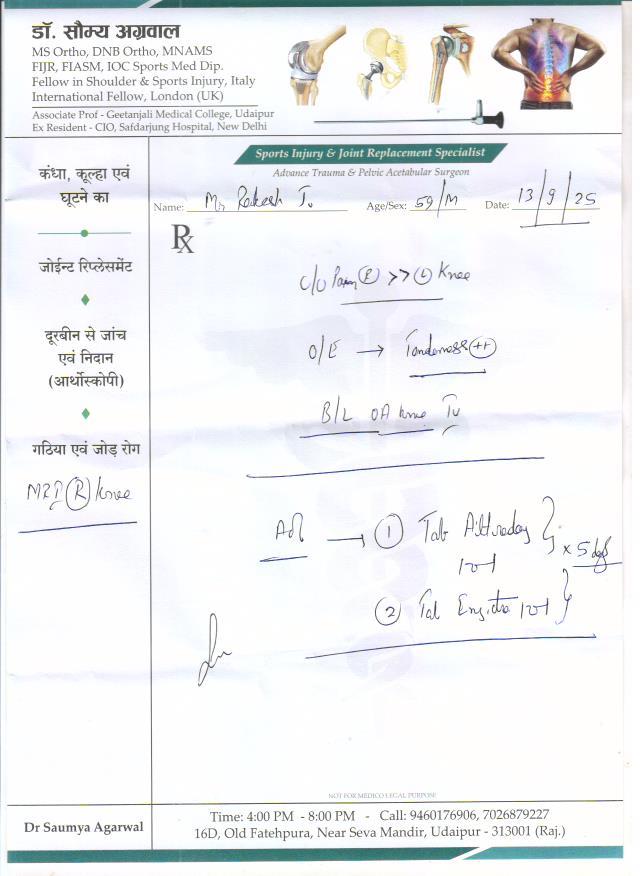 डॉ. सौम्य अग्रवाल
MS Ortho, DNB Ortho, MNAMS
FIJR, FIASM, IOC Sports Med Dip.
Fellow in Shoulder & Sports Injury, Italy
International Fellow, London (UK)
Associate Prof - Geetanjali Medical College, Udaipur
Ex Resident - CIO, Safdarjung Hospital, New Delhi
Sports Injury & Joint Replacement Specialist
Advance Trauma & Pelvic Acetabular Surgeon
Name: Mr Rakesh J. Age/Sex: 59/M Date: 13/9/25
Rx
कंधा, कूल्हा एवं
घूटने का
जोईन्ट रिप्लेसमेंट
दूरबीन से जांच
एवं निदान
(आर्थोस्कोपी)
गठिया एवं जोड़ रोग
MRI (R) Knee
C/O Pain (R) >> (L) Knee
O/E → Tenderness (++)
B/L OA Knee
Adv → 1 Tab
x 5 days
2 Tab
NOT FOR MEDICO LEGAL PURPOSE
Dr Saumya Agarwal
Time: 4:00 PM - 8:00 PM - Call: 9460176906, 7026879227
16D, Old Fatehpura, Near Seva Mandir, Udaipur - 313001 (Raj.)